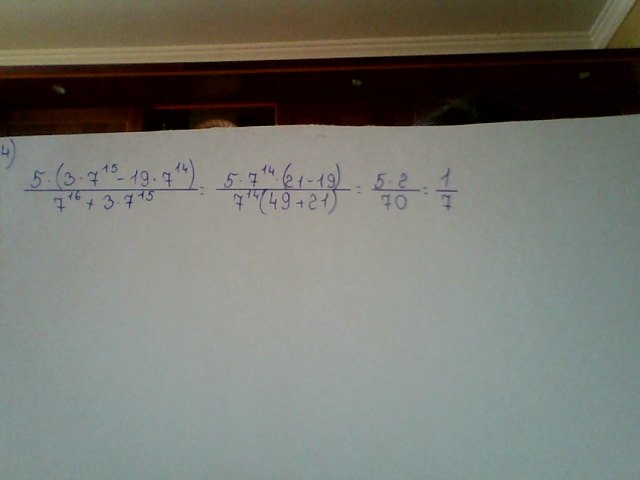 4)
5·(3·7¹⁵-19·7¹⁴)/7¹⁶+3·7¹⁵ = 5·7¹⁴·(21-19)/7¹⁴(49+21) = 5·2/70 = 1/7